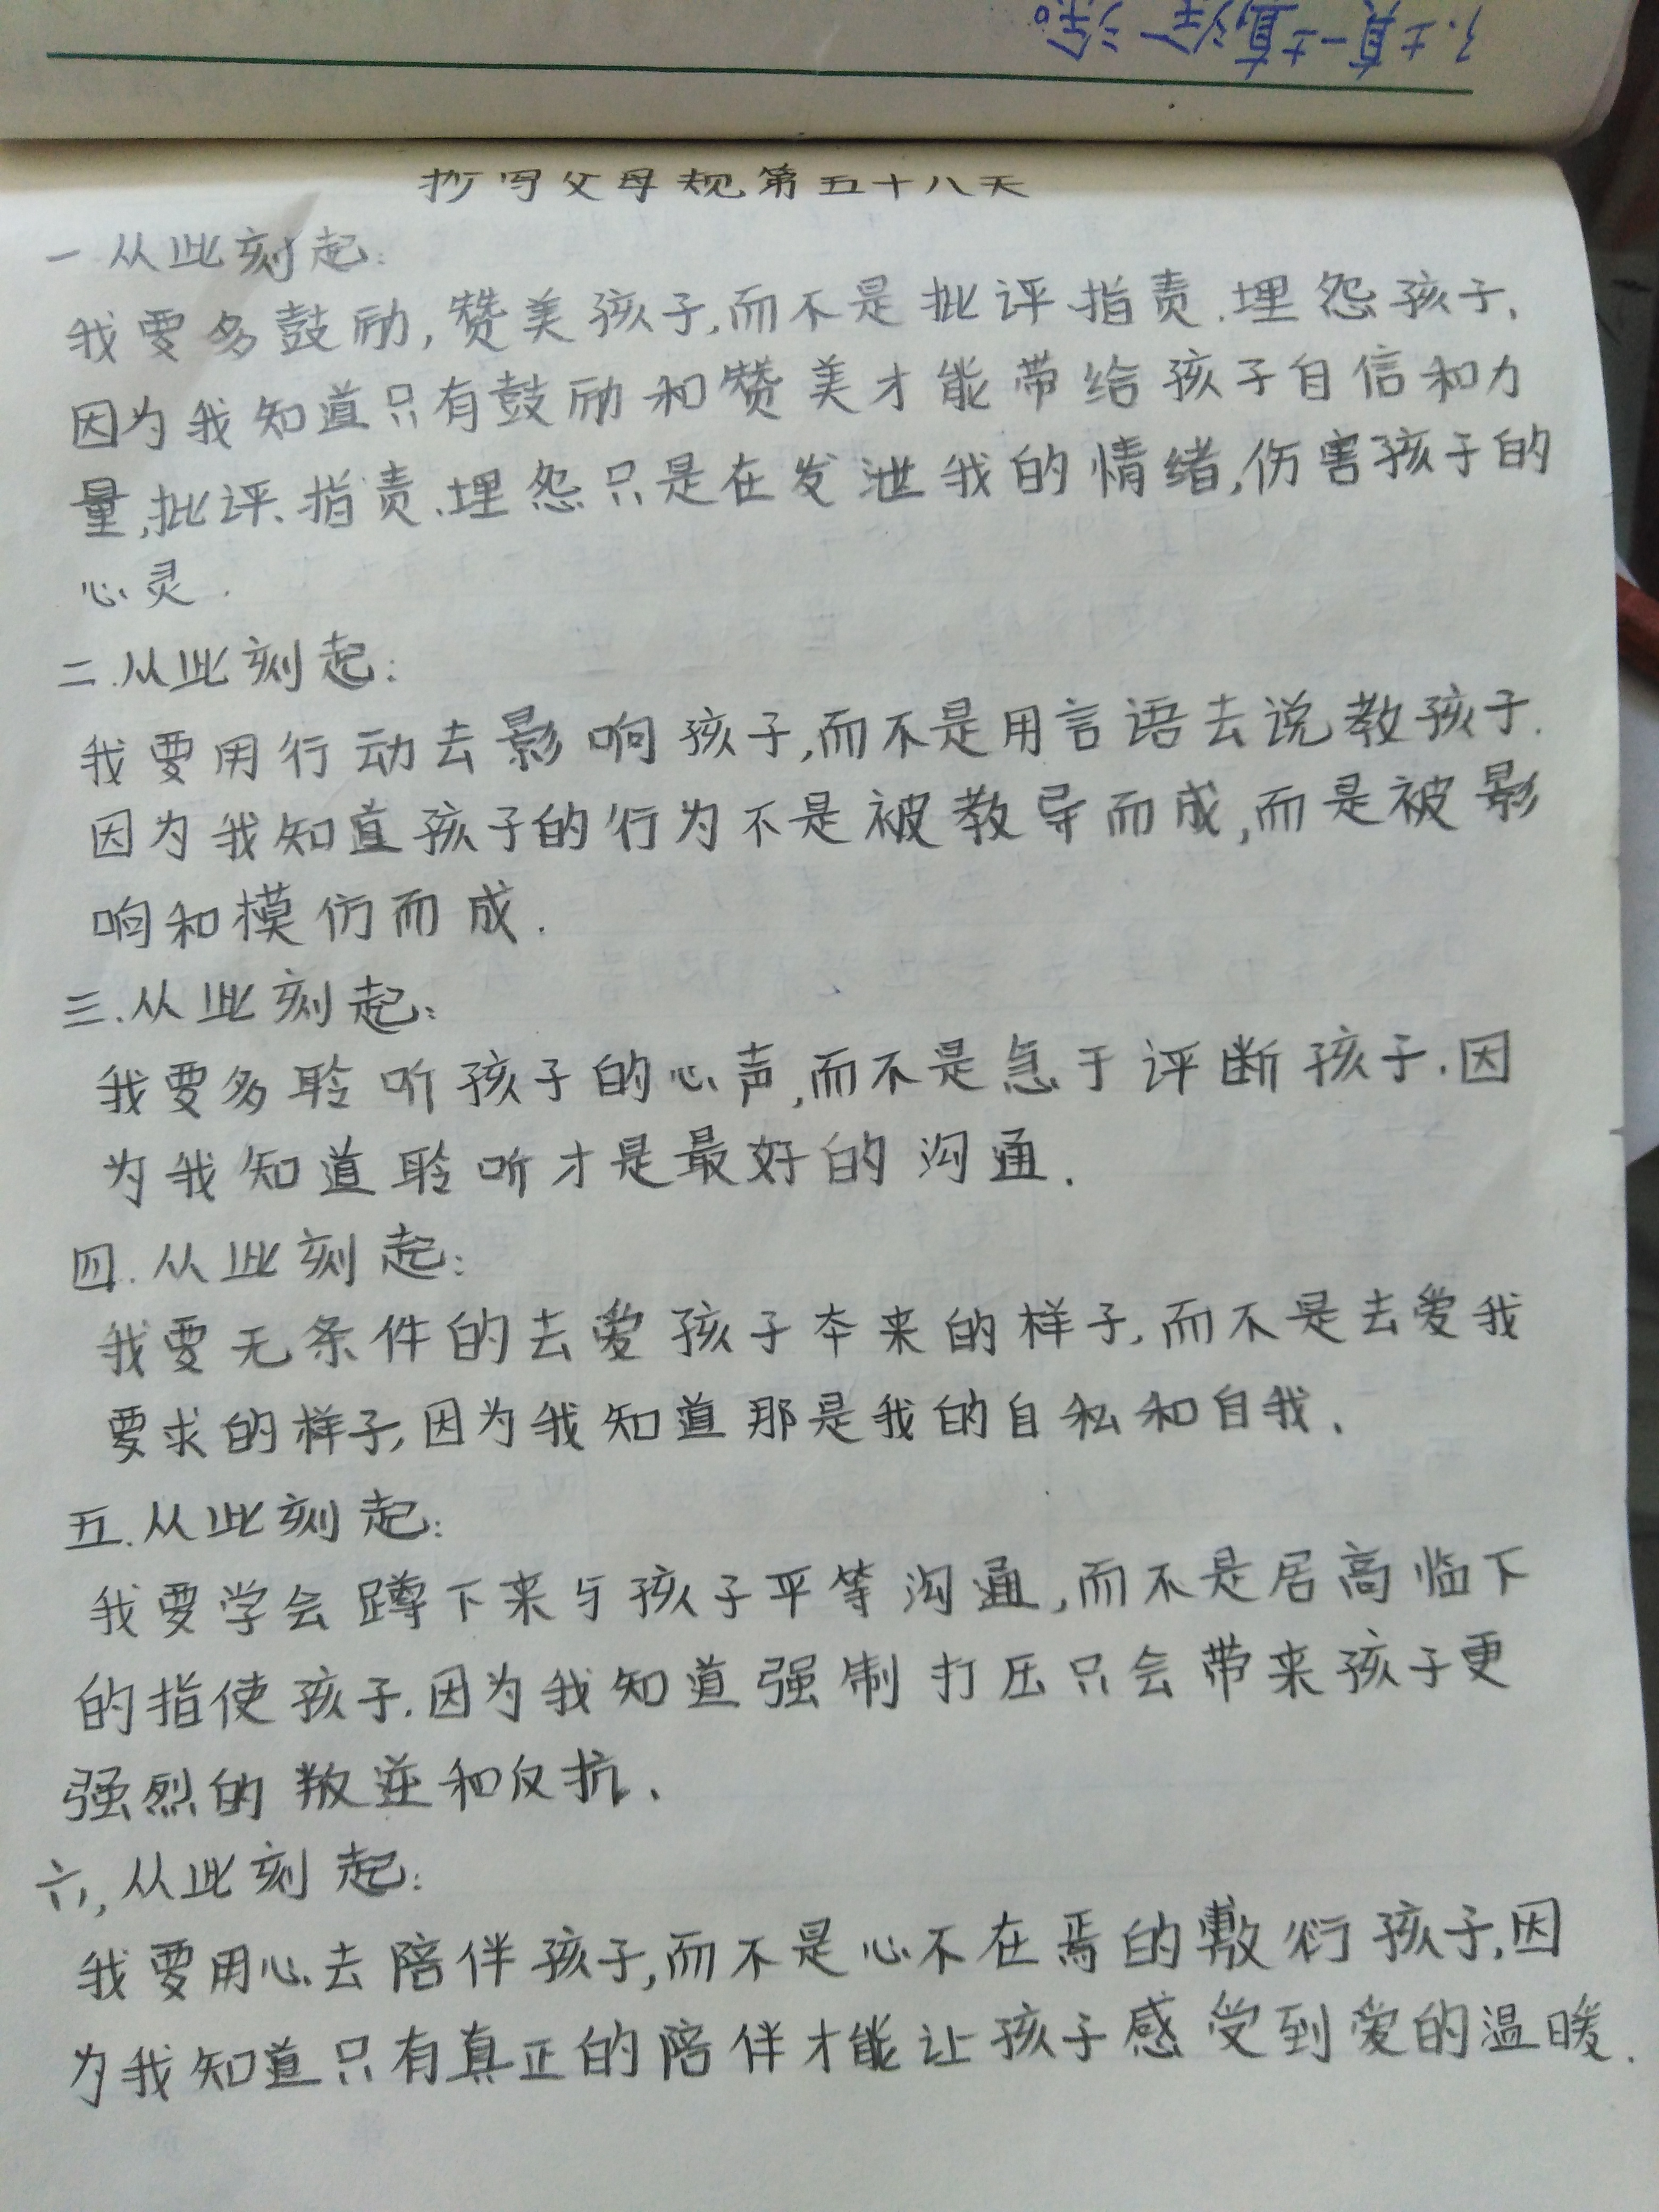 抄写父母规第五十八天
一从此刻起:
我要多鼓励,赞美孩子,而不是批评.指责.埋怨孩子.
因为我知道只有鼓励和赞美才能带给孩子自信和力
量,批评、指责.埋怨只是在发泄我的情绪,伤害孩子的
心灵.
二.从此刻起:
我要用行动去影响孩子,而不是用言语去说教孩子.
因为我知道孩子的行为不是被教导而成,而是被影
响和模仿而成.
三.从此刻起:
我要多聆听孩子的心声,而不是急于评断孩子.因
为我知道聆听才是最好的沟通.
四.从此刻起:
我要无条件的去爱孩子本来的样子,而不是去爱我
要求的样子,因为我知道那是我的自私和自我.
五.从此刻起:
我要学会蹲下来与孩子平等沟通,而不是居高临下
的指使孩子.因为我知道强制打压只会带来孩子更
强烈的叛逆和反抗.
六,从此刻起:
我要用心去陪伴孩子,而不是心不在焉的敷衍孩子,因
为我知道只有真正的陪伴才能让孩子感受到爱的温暖.